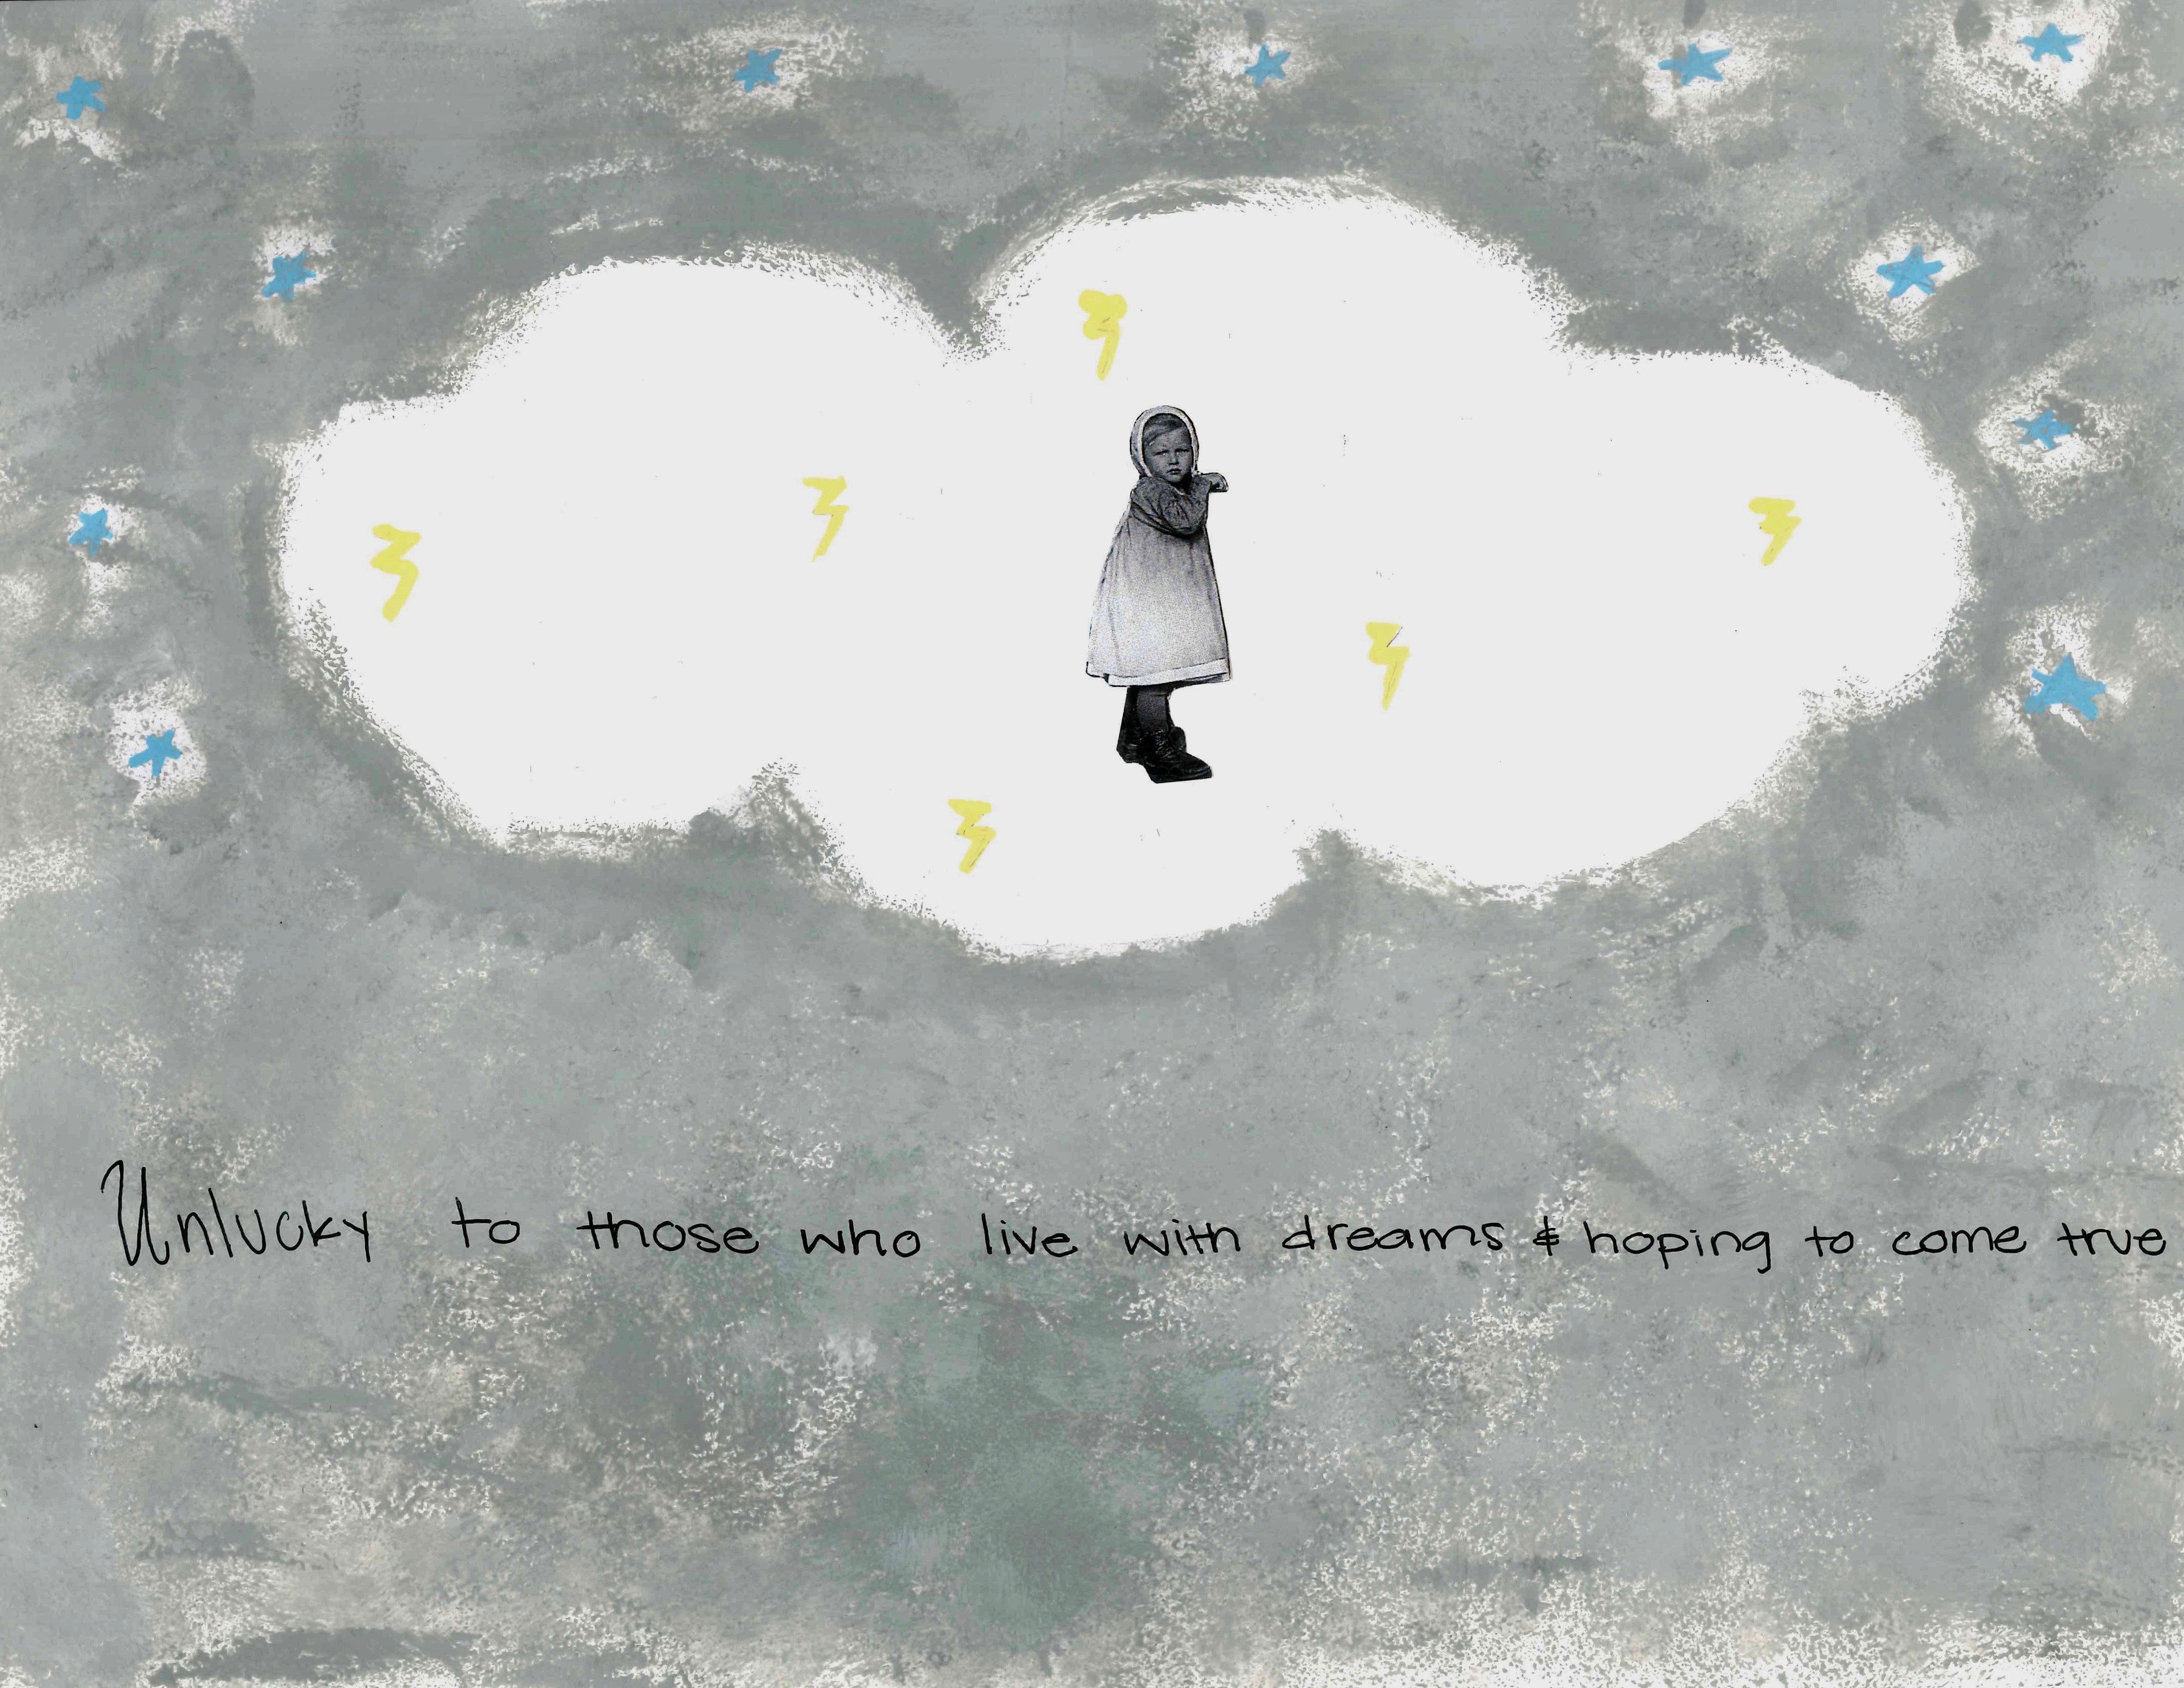 Unlucky to those who live with dreams & hoping to come true